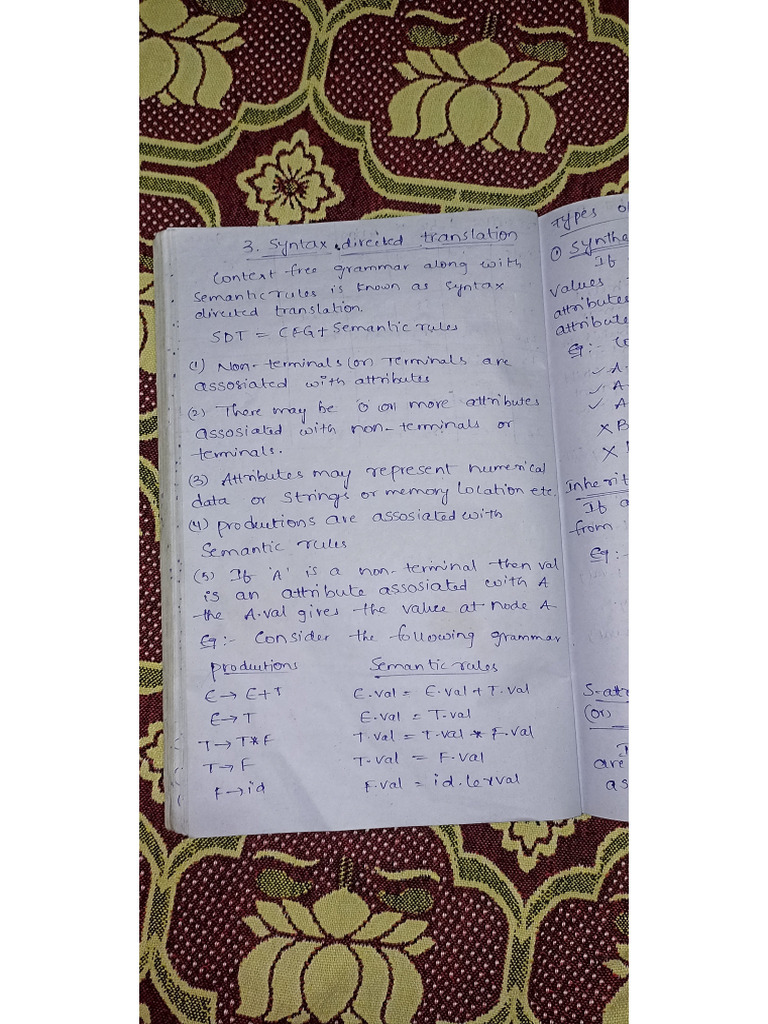 3. Syntax directed translation
Context free grammar along with
semantic rules is known as Syntax
directed translation.
SDT = CFG + Semantic rules
(1) Non-terminals (or) Terminals are
assosiated with attributes
(2) There may be 'o' (or) more attributes
assosiated with non-terminals or
terminals.
(3) Attributes may represent numerical
data or strings or memory location etc.
(4) productions are assosiated with
Semantic rules
(5) If 'A' is a non-terminal then val
is an attribute assosiated with A
the A.val gives the value at node A
Eg:- Consider the following grammar.
productions Semantic rules
E → E+T E.val = E.val + T.val
E → T E.val = T.val
T → T*F T.val = T.val * F.val
T → F T.val = F.val
F → id F.val = id.lexval
Types o
① Synthe
If
values
attribute
attribute
Eg:-
✓ A
✓ A
✓ A
× B
×
Inherit
If a
from
Eg:-
S-att
(or)
are
as